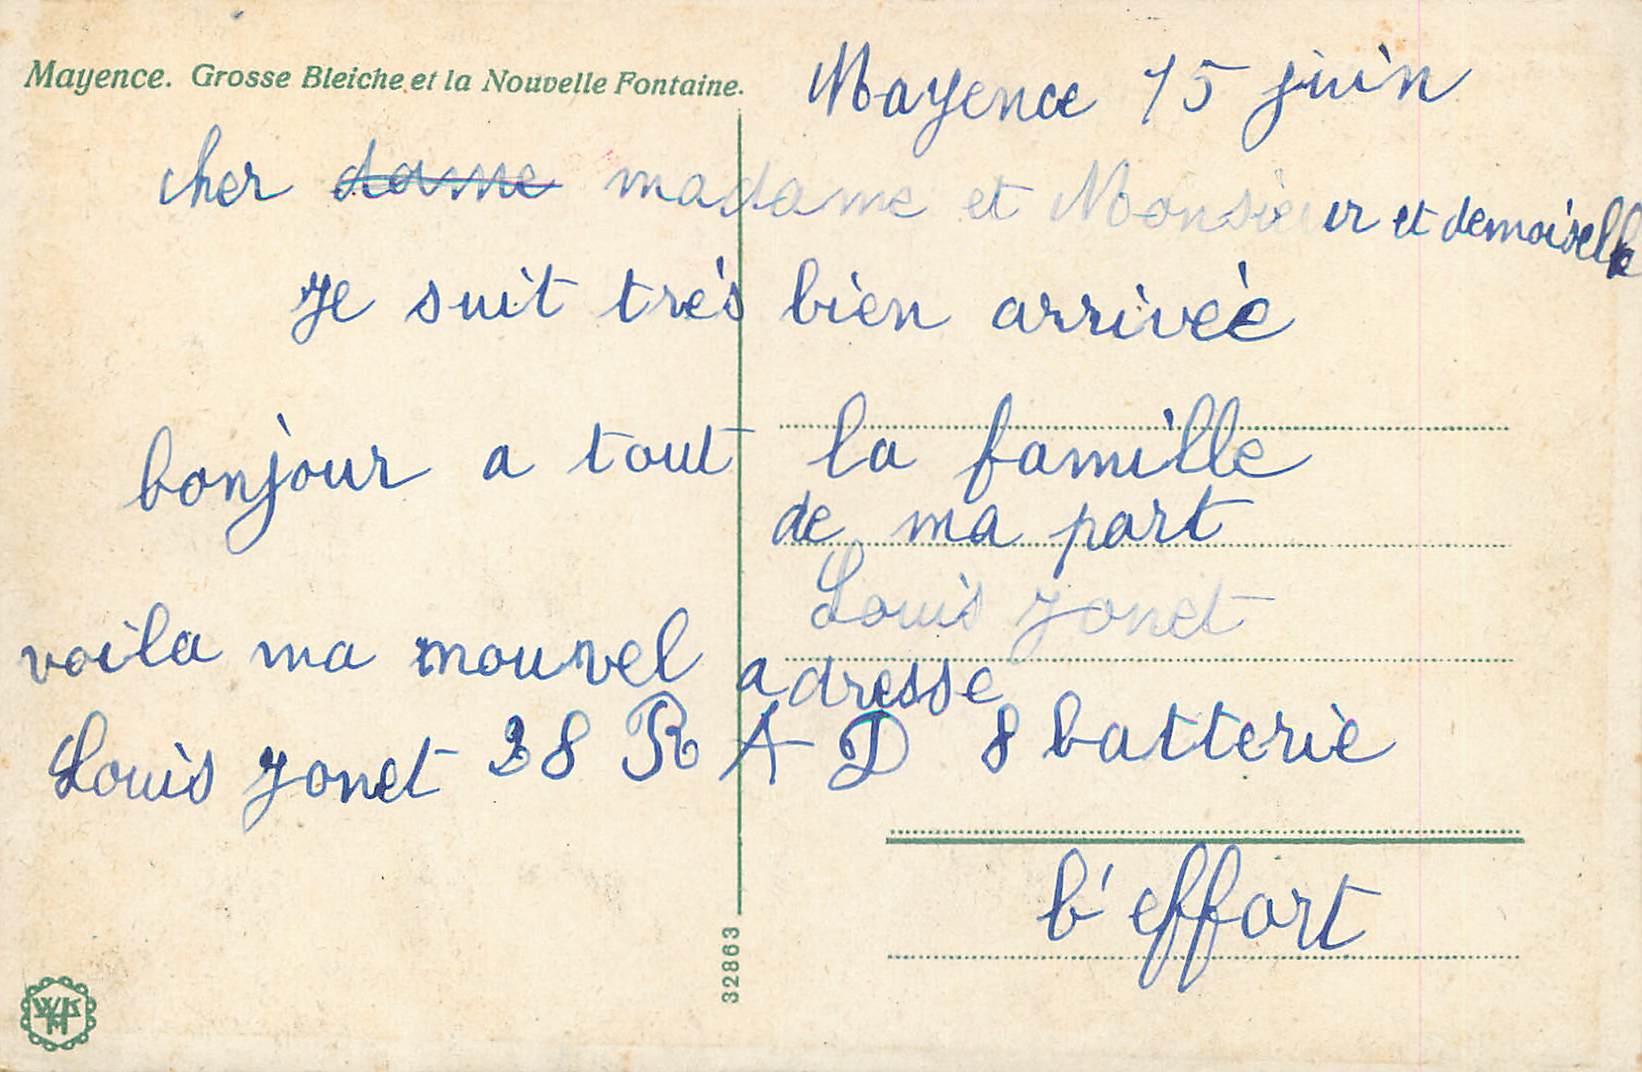 Mayence. Grosse Bleiche et la Nouvelle Fontaine.
Mayence 15 juin
cher dame madame et Monsieur et demoiselle
Je suit très bien arrivée
bonjour a tout la famille
de ma part
Louis Jonet
voila ma nouvel adresse
Louis Jonet 38 R A D 8 batterie
b'effort
32863